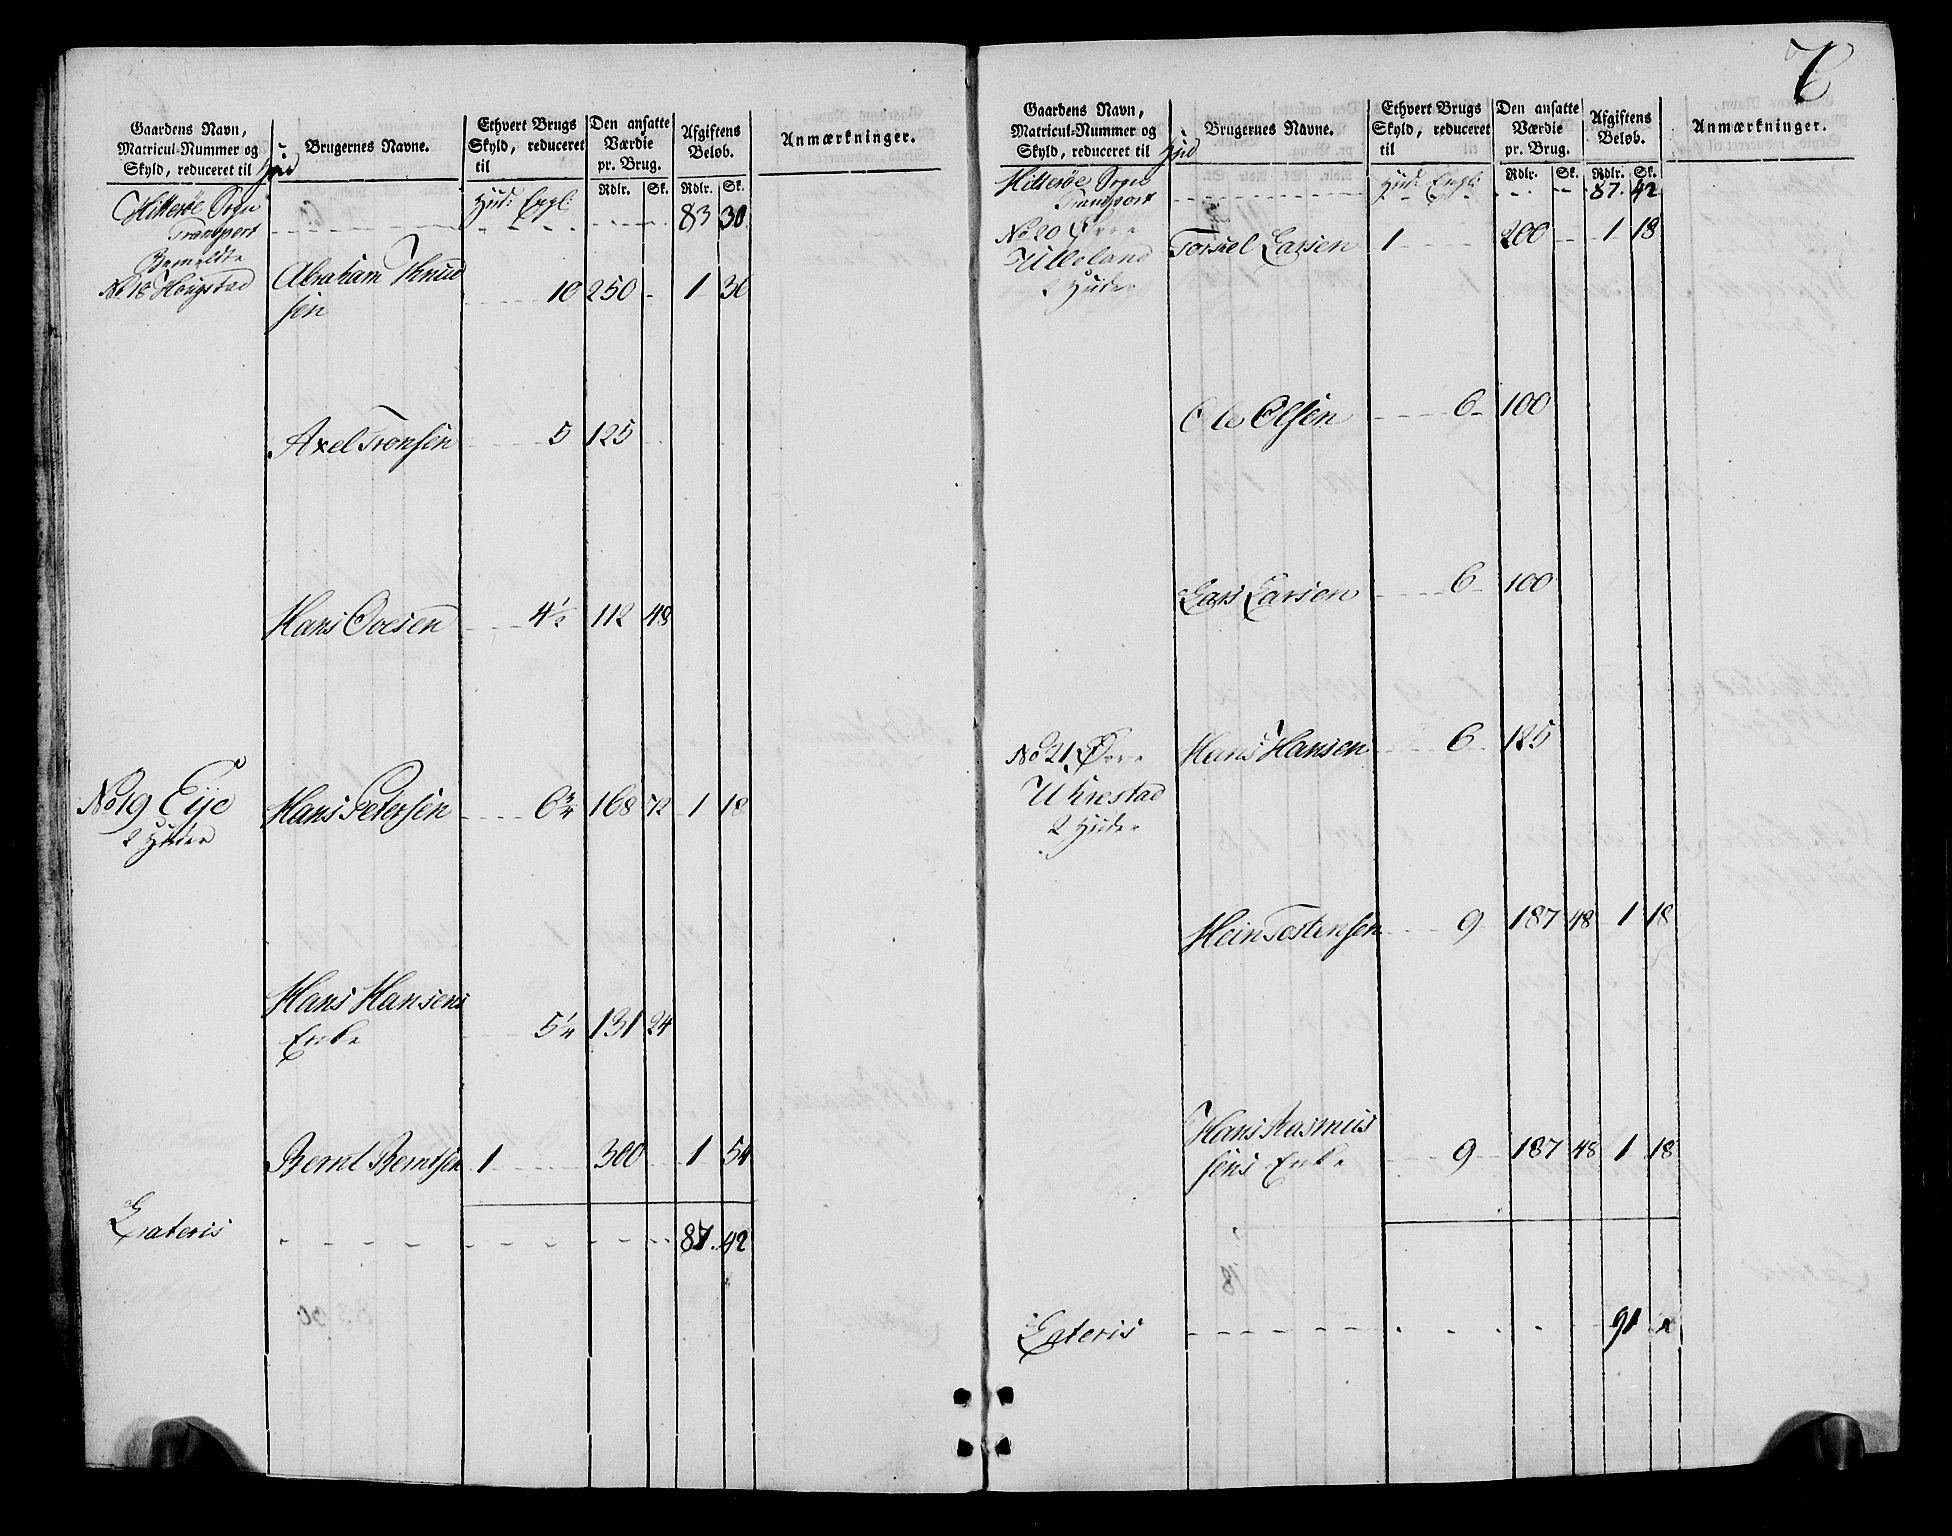 7
Gaardens Navn,
Matricul-Nummer og
Skyld, reduceret til Hud
Brugernes Navne.
Ethvert Brugs
Skyld, reduceret
til
Den ansatte
Værdie
pr. Brug.
Afgiftens
Beløb.
Anmærkninger.
Rdlr. Sk. Rdlr. Sk.
Hitterøe Sogn Hud: Engl:
Transport 83 30
Bemeldte
No 18 Høugstad Abraham Knud 10 250 - 1 30
sen
Axel Tronsen 5 125
Hans Ovesen 4½ 112 48
No 19 Eije Hans Petersen 6¾ 168 72 1 18
2 Huder
Hans Hansens
Enke 5¼ 131 24
Bernt Berntsen 1 300 1 54
Lateris 87. 42
Gaardens Navn,
Matricul-Nummer og
Skyld, reduceret til Hud
Brugernes Navne.
Ethvert Brugs
Skyld, reduceret
til
Den ansatte
Værdie
pr. Brug.
Afgiftens
Beløb.
Anmærkninger.
Rdlr. Sk. Rdlr. Sk.
Hitterøe Sogn Hud: Engl:
Transport 87. 42
No 20 Øvre Torkel Larsen 1 200 1 18
Ulleland
2 Huder
Ole Olsen 6 100
Lars Larsen 6 100
No 21 Øvre Hans Hansen 6 125
Uhrestad
2 Huder
Hein Tostensen 9 187 48 1 18
Hans Rasmus
sens Enke 9 187 48 1 18
Lateris 91